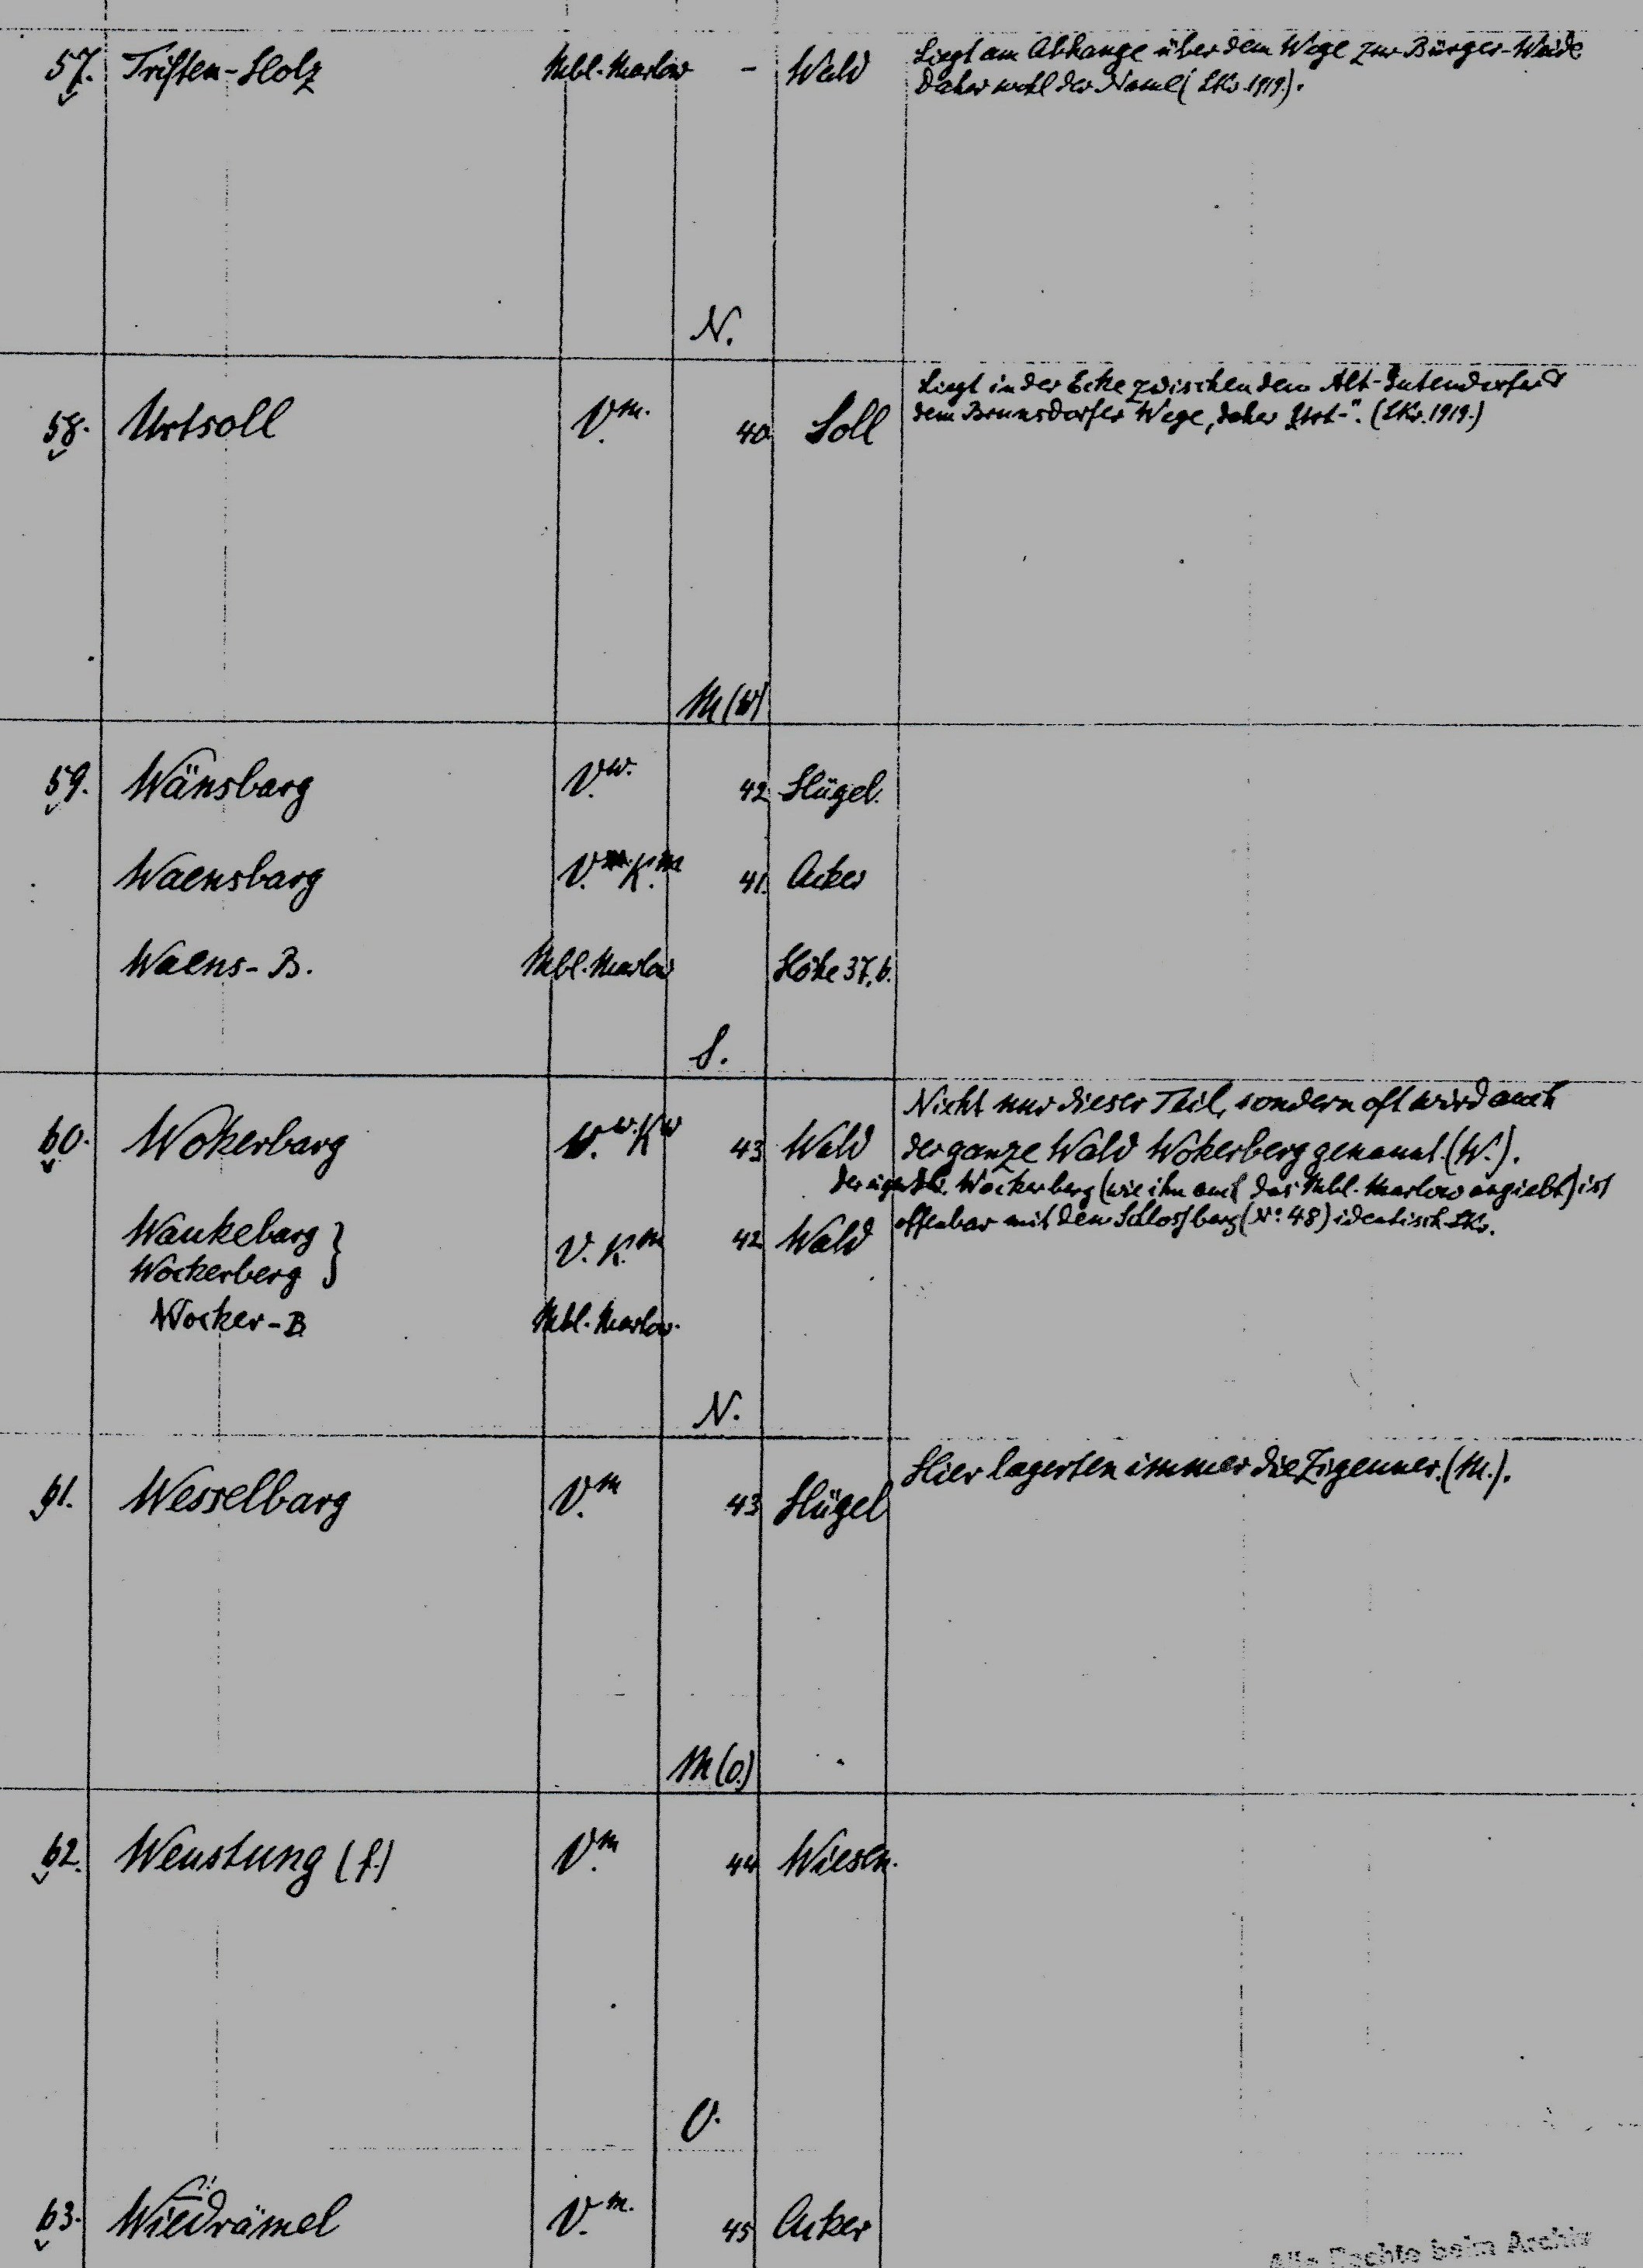 57. Triften-Holz Mbl. Marlow - Wald Liegt am Abhange über dem Wege zur Bürger-Weide
Daher wohl der Name (LKr. 1919.).
N.
58. Urtsoll V.m. 40 Soll Liegt in der Ecke zwischen dem Alt-Gutendorfer &
dem Brunsdorfer Wege, daher "Urt-". (LKr. 1919.)
M (W)
59. Wänsbarg V.w. 42 Hügel.
Waensbarg V.m. K.m 41. Acker
Waens-B. Mbl. Marlow Höhe 37,6.
S.
60. Wokerbarg V.w. K.w 43 Wald Nicht nur dieser Teil, sondern oft wird auch
der ganze Wald Wokerberg genannt. (W.).
Der eigentl. Wockerberg (wie ihn auch das Mbl. Marlow angiebt) ist
offenbar mit dem Schlossberg (No: 48) identisch. LKr.
Waukebarg }
Wockerberg } V. K.m 42 Wald
Wocker-B. Mbl. Marlow.
N.
61. Wesselbarg V.m 43 Hügel Hier lagerten immer die Zigeuner. (M.).
M (O.)
62. Weustung (f.) V.m 44 Wiesen.
O.
63. Wiedrämel V.m. 45 Acker
Alle Rechte beim Archiv